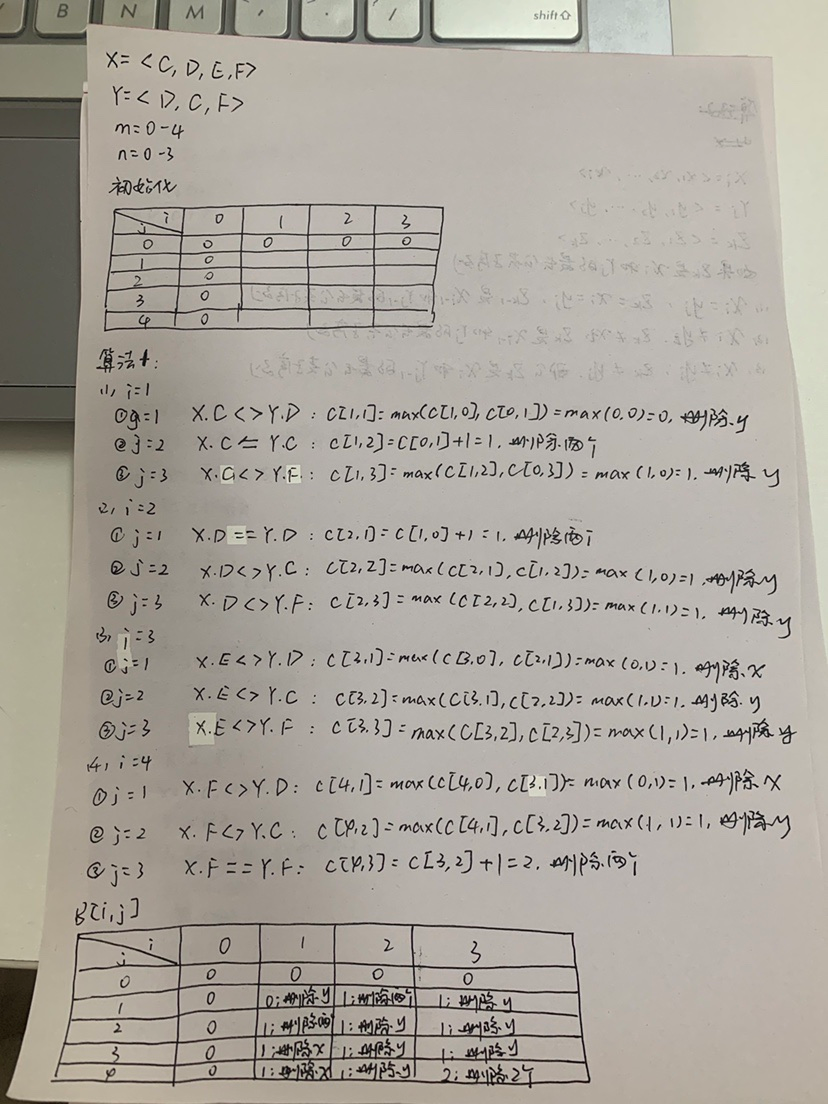 B N M , . / shift
X= <C, D, E, F>
Y= <D, C, F>
m=0-4
n=0-3
初始化
j i 0 1 2 3
0 0 0 0 0
1 0
2 0
3 0
4 0
算法:
(1), i=1
① j=1 X.C<>Y.D: C[1,1]=max(C[1,0], C[0,1])=max(0,0)=0, 删除y
② j=2 X.C == Y.C: C[1,2]=C[0,1]+1=1, 删除两个
③ j=3 X.C<>Y.F: C[1,3]=max(C[1,2], C[0,3])=max(1,0)=1, 删除y
(2), i=2
① j=1 X.D == Y.D: C[2,1]=C[1,0]+1=1, 删除两个
② j=2 X.D<>Y.C: C[2,2]=max(C[2,1], C[1,2])=max(1,0)=1, 删除y
③ j=3 X.D<>Y.F: C[2,3]=max(C[2,2], C[1,3])=max(1,1)=1, 删除y
(3), i=3
① j=1 X.E<>Y.D: C[3,1]=max(C[3,0], C[2,1])=max(0,1)=1, 删除x
② j=2 X.E<>Y.C: C[3,2]=max(C[3,1], C[2,2])=max(1,1)=1, 删除y
③ j=3 X.E<>Y.F: C[3,3]=max(C[3,2], C[2,3])=max(1,1)=1, 删除y
(4), i=4
① j=1 X.F<>Y.D: C[4,1]=max(C[4,0], C[3,1])=max(0,1)=1, 删除x
② j=2 X.F<>Y.C: C[4,2]=max(C[4,1], C[3,2])=max(1,1)=1, 删除y
③ j=3 X.F==Y.F: C[4,3]=C[3,2]+1=2, 删除两个
B[i,j]
j i 0 1 2 3
0 0 0 0 0
1 0 0;删除y 1;删除两个 1;删除y
2 0 1;删除两 1;删除y 1;删除y
3 0 1;删除x 1;删除y 1;删除y
4 0 1;删除x 1;删除y 2;删除2个